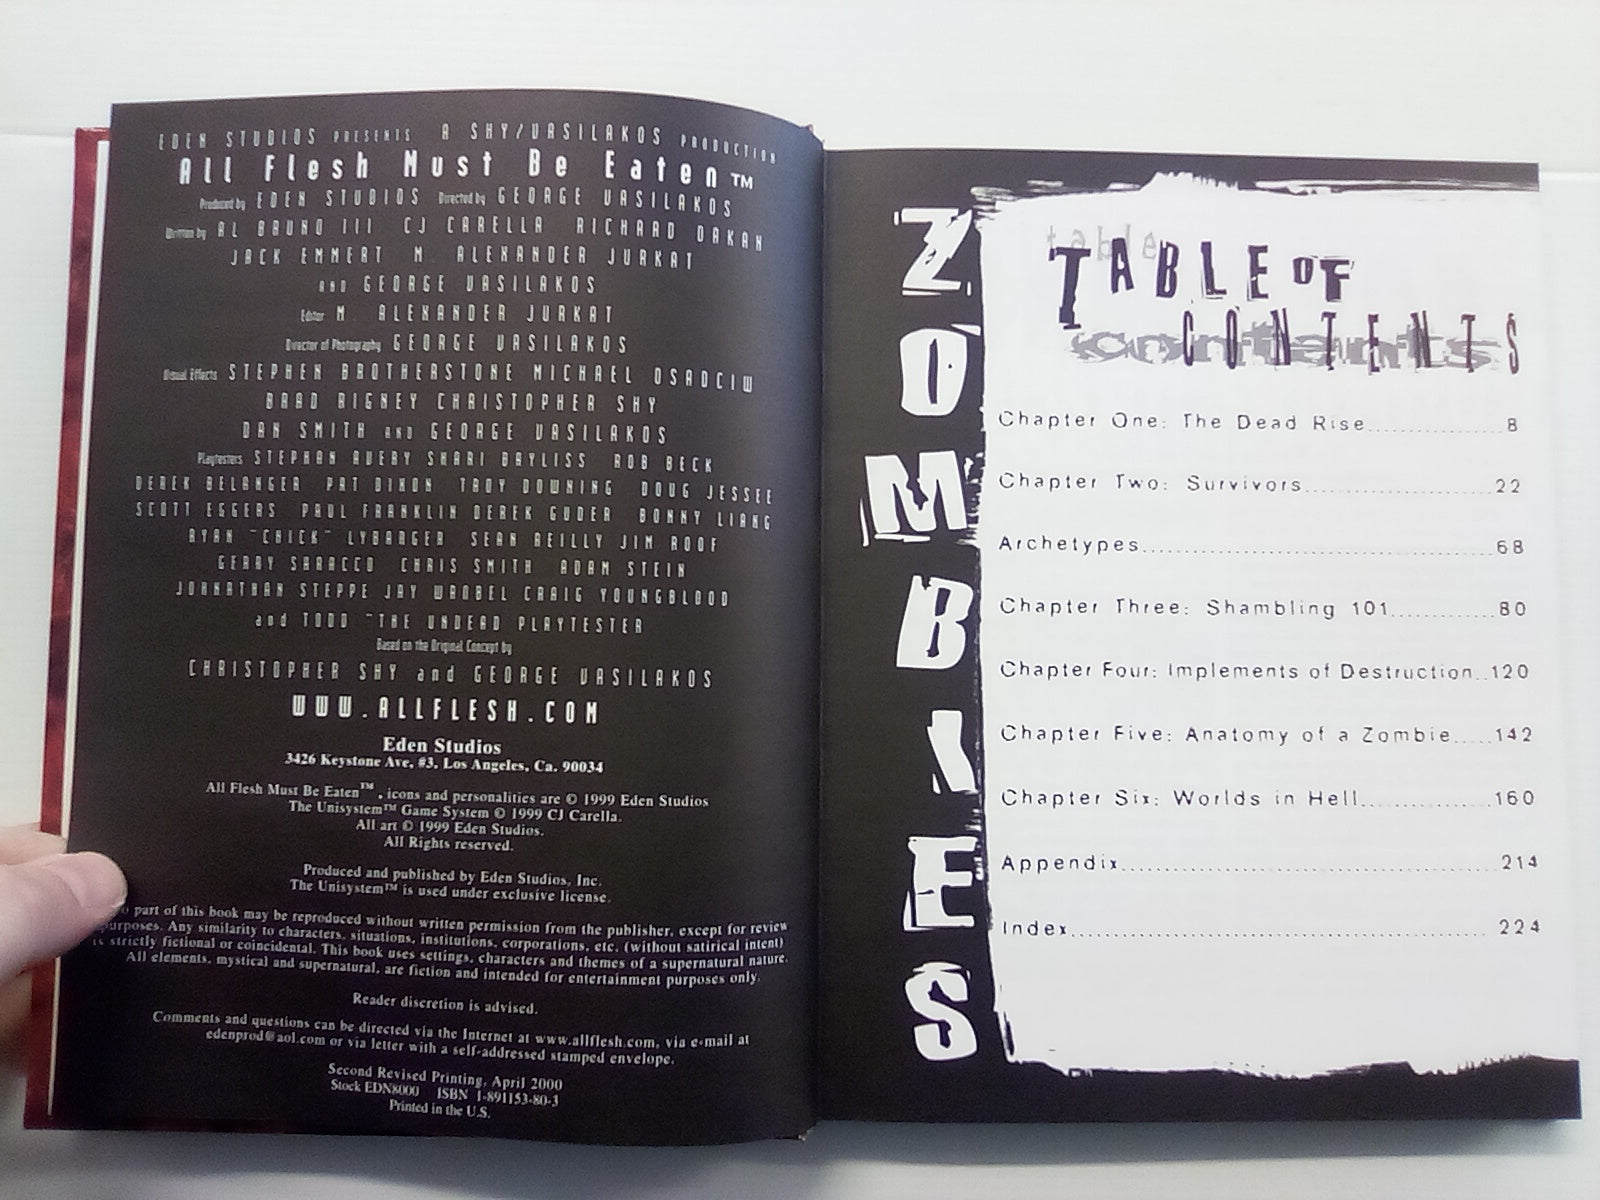 EDEN STUDIOS PRESENTS A SHY/VASILAKOS PRODUCTION
All Flesh Must Be Eaten™
Produced by EDEN STUDIOS Directed by GEORGE VASILAKOS
Written by AL BRUNO III CJ CARELLA RICHARD DAKAN
JACK EMMERT M. ALEXANDER JURKAT
AND GEORGE VASILAKOS
Editor M. ALEXANDER JURKAT
Director of Photography GEORGE VASILAKOS
Visual Effects STEPHEN BROTHERSTONE MICHAEL OSADCIW
BRAD RIGNEY CHRISTOPHER SHY
DAN SMITH AND GEORGE VASILAKOS
Playtesters STEPHAN AVERY SHARI BAYLISS ROB BECK
DEREK BELANGER PAT DIXON TROY DOWNING DOUG JESSEE
SCOTT EGGERS PAUL FRANKLIN DEREK GUDER BONNY LIANG
RYAN "CHICK" LYBARGER SEAN REILLY JIM ROOF
GERRY SARACCO CHRIS SMITH ADAM STEIN
JOHNATHAN STEPPE JAY WROBEL CRAIG YOUNGBLOOD
and TODD "THE UNDEAD PLAYTESTER
Based on the Original Concept by
CHRISTOPHER SHY and GEORGE VASILAKOS
WWW.ALLFLESH.COM
Eden Studios
3426 Keystone Ave, #3, Los Angeles, Ca. 90034
All Flesh Must Be Eaten™, icons and personalities are © 1999 Eden Studios
The Unisystem™ Game System © 1999 CJ Carella.
All art © 1999 Eden Studios.
All Rights reserved.
Produced and published by Eden Studios, Inc.
The Unisystem™ is used under exclusive license.
part of this book may be reproduced without written permission from the publisher, except for review
purposes. Any similarity to characters, situations, institutions, corporations, etc. (without satirical intent)
is strictly fictional or coincidental. This book uses settings, characters and themes of a supernatural nature.
All elements, mystical and supernatural, are fiction and intended for entertainment purposes only.
Reader discretion is advised.
Comments and questions can be directed via the Internet at www.allflesh.com, via e-mail at
edenprod@aol.com or via letter with a self-addressed stamped envelope.
Second Revised Printing, April 2000
Stock EDN8000 ISBN 1-891153-80-3
Printed in the U.S.
ZOMBIES
table
TABLE OF
contents
CONTENTS
Chapter One: The Dead Rise..................8
Chapter Two: Survivors........................22
Archetypes..............................................68
Chapter Three: Shambling 101.............80
Chapter Four: Implements of Destruction..120
Chapter Five: Anatomy of a Zombie.....142
Chapter Six: Worlds in Hell.................160
Appendix................................................214
Index.....................................................224